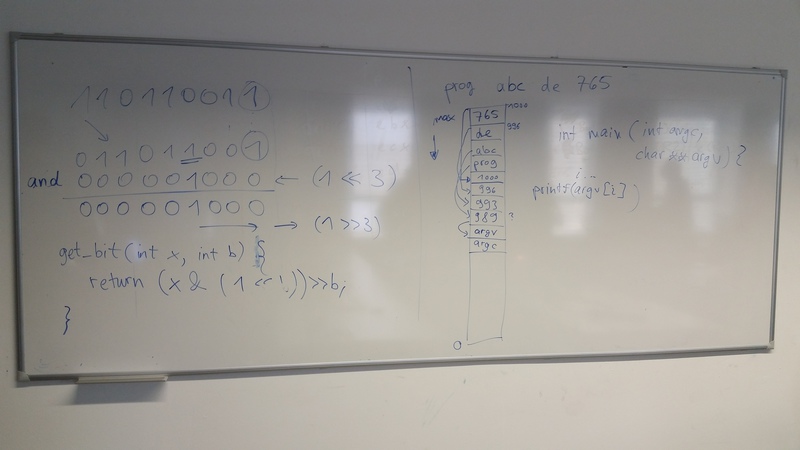 110110011
011011001
and 000001000 ← (1 << 3)
000001000
→ → (1 >> 3)
get_bit(int x, int b) {
return (x & (1 << )) >> b;
}
prog abc de 765
max
765
de 996
abc
prog
1000
996
993
989 ?
argv
argc
0
int main (int argc,
char ** argv) {
i...
printf(argv[i])